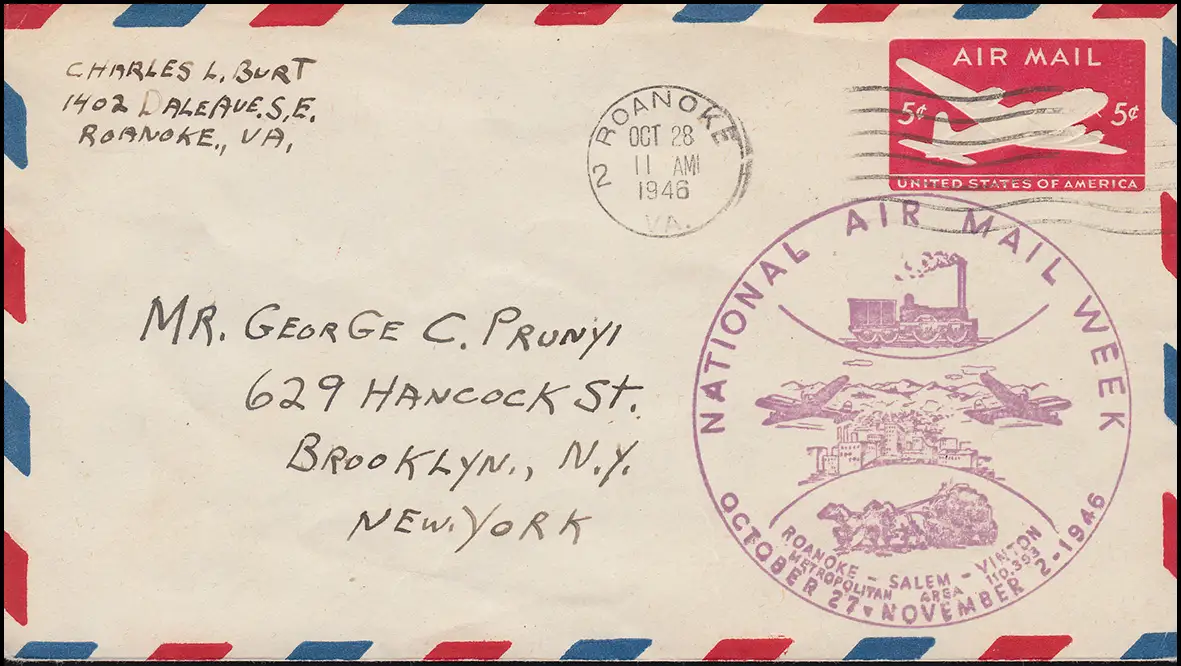 CHARLES L. BURT
1402 DALE AVE. S.E.
ROANOKE., VA.
ROANOKE
OCT 28
11 AM
1946
2
VA.
AIR MAIL
5¢ 5¢
UNITED STATES OF AMERICA
MR. GEORGE C. PRUNYI
629 HANCOCK ST.
BROOKLYN., N.Y.
NEW. YORK
NATIONAL AIR MAIL WEEK
ROANOKE - SALEM - VINTON
METROPOLITAN AREA 110,393
OCTOBER 27 NOVEMBER 2-1946